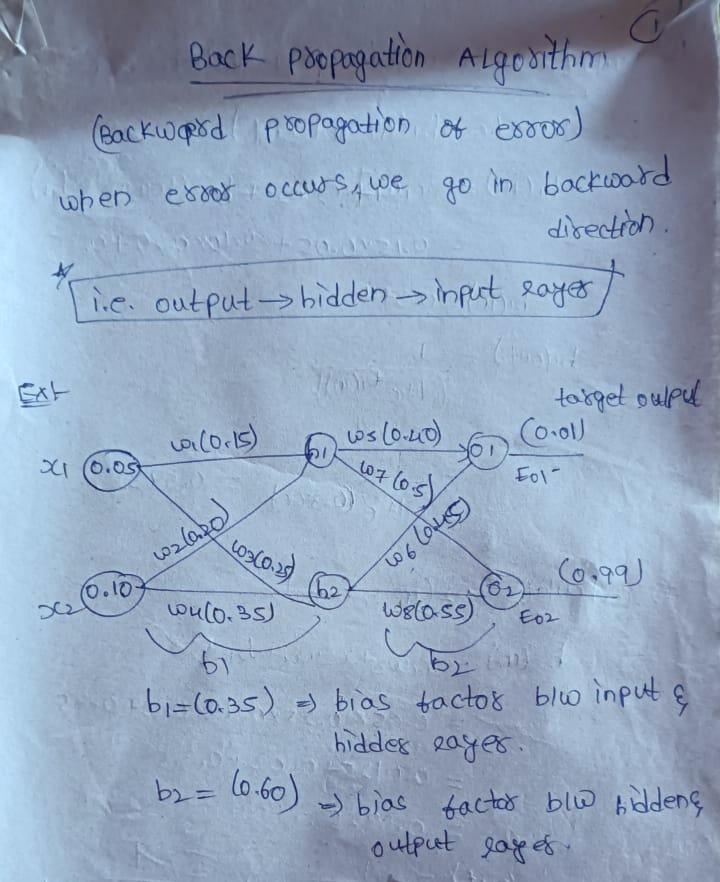 1
Back propagation Algorithm
(Backward propagation of error)
when error occurs, we go in backward
direction.
i.e. output → hidden → input layer
Ex:-
target output
x1 (0.05) w1(0.15) h1 w5(0.40) O1 (0.01)
w7(0.5) E01-
w2(0.20) w3(0.25) w6(0.45)
x2 (0.10) w4(0.35) h2 w8(0.55) O2 (0.99)
E02
b1 b2
b1=(0.35) ⇒ bias factor b/w input &
hidder layer.
b2=(0.60) ⇒ bias factor b/w hidden &
output layer.